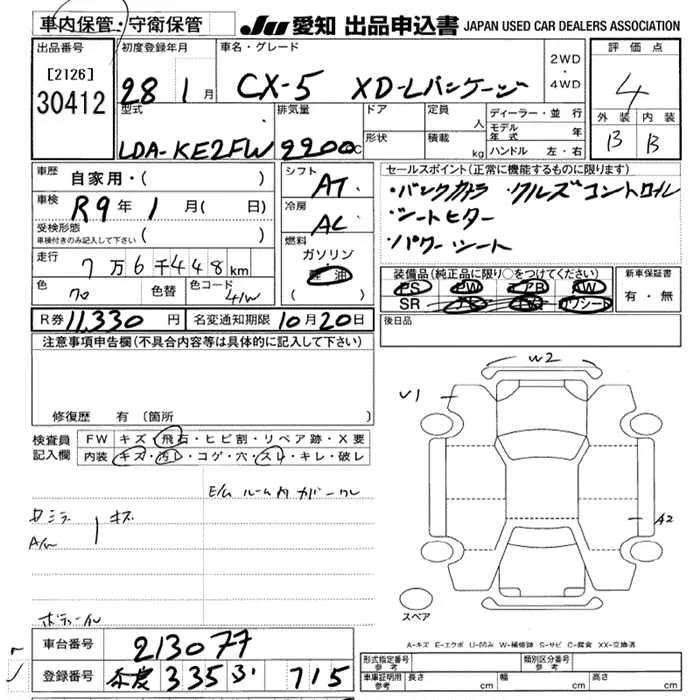 車内保管・守衛保管
JU 愛知 出品申込書 JAPAN USED CAR DEALERS ASSOCIATION
出品番号
[2126]
30412
初度登録年月
28 1月
車名・グレード
CX-5 XD-Lパッケージ
2WD
・
4WD
評価点
4
外装 内装
B B
型式
LDA-KE2FW
排気量
2200cc
ドア
形状
定員 人
積載 kg
ディーラー・並行
モデル年式 年
ハンドル 左・右
車歴
自家用・( )
車検
R9年 1月( 日)
受検形態
車検付きのみ記入して下さい
( )
走行
7万6千448km
色
クロ
色替
色コード
41W
シフト
AT
冷房
AC
燃料
ガソリン
軽油
( )
セールスポイント(正常に機能するものに限ります)
・バックカメラ クルズコントロイル
・シートヒター
・パワーシート
装備品(純正品に限り○をつけてください)
PS PW エアB AW
SR ナビ TV カワシート
新車保証書
有・無
後日品
R券 11,330円
名変通知期限 10月20日
注意事項申告欄(不具合内容等は具体的に記入して下さい)
修復歴 有〔箇所
検査員
記入欄
FW キズ・飛石・ヒビ割・リペア跡・X要
内装 キズ・汚レ・コゲ・穴・スレ・キレ・破レ
E/G ルーム内カバークレ
キズ
A/W
W2
U1
A2
スペア
A-キズ E-エクボ U-凹み W-補修跡 S-サビ C-腐食 XX-交換済
車台番号
213077
登録番号
335 715
形式指定番号
参考
類別区分番号
参考
車庫証明用
参考
長さ cm
幅 cm
高さ cm